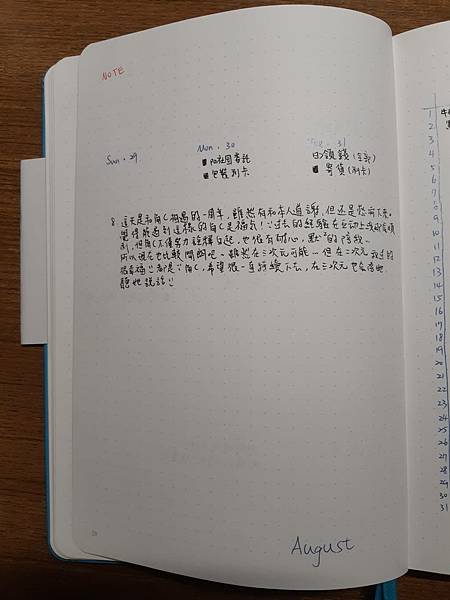 NOTE
Sun. 29
Mon. 30
Tue. 31
PO社團寄託
包裝別卡
領錢(全部)
寄貨(別卡)
這天是和自C相遇的一周年,雖然有和本人道謝,但還是想寫下來。
覺得能遇到這樣的自C是福氣!過去的經驗在互動上或說有順
利,但自C不僅努力理解自己,也很有耐心,默默的陪我…
所以現在也比較開朗吧。雖然在三次元可能…但在二次元我過的
很幸福!都是自C,希望很一直持續下去,在三次元也會常
聽她說話!
August
1
2
3
4
5
6
7
8
9
10
11
12
13
14
15
16
17
18
19
20
21
22
23
24
25
26
27
28
29
30
31